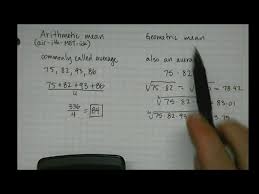 Arithmetic mean
(air-ith-MET-ik)
commonly called average
75, 82, 93, 86
75 + 82 + 93 + 86
4
336
4
= 84
Geometric mean
also an average
75 · 82
√75 · 82 = 78.42
√75 · 82 · 93 = 83.01
√75 · 82 · 93